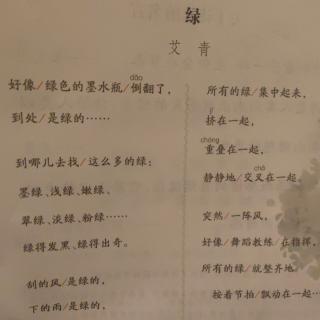 绿
艾青
dǎo
好像/绿色的墨水瓶/倒翻了,
到处/是绿的……
到哪儿去找/这么多的绿:
墨绿、浅绿、嫩绿、
翠绿、淡绿、粉绿……
绿得发黑、绿得出奇。
刮的风/是绿的,
下的雨/是绿的,
所有的绿/集中起来,
jǐ
挤在一起,
chóng
重叠在一起,
chā
静静地/交叉在一起。
突然/一阵风,
好像/舞蹈教练/在指挥,
所有的绿/就整齐地
按着节拍/飘动在一起…